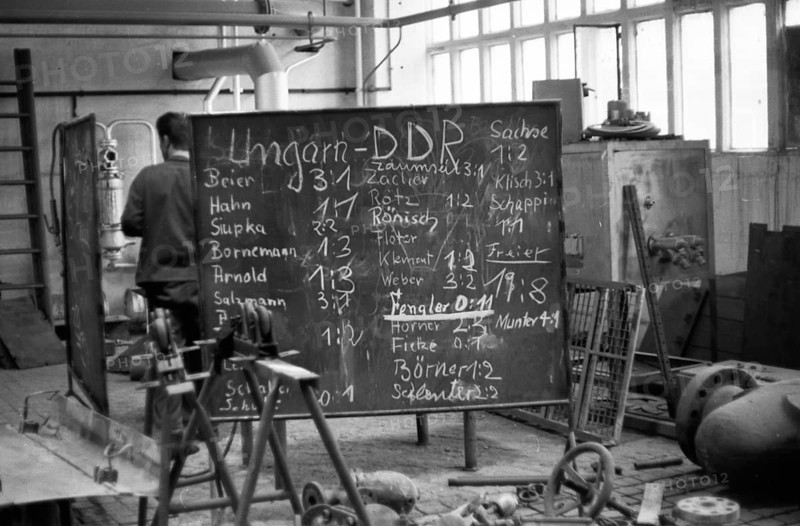 Ungarn-DDR
Beier 3:1
Hahn 1:1
Slupka 2:2
Bornemann 1:3
Arnold 1:3
Salzmann 3:1
1:2
0:1
Zaumseil 3:1
Zacher
Rötz 1:2
Rönisch
Flöter
Klement 1:2
Weber 3:2
Fengler 0:11
Horner 2:3
Fietze 0:1
Börner 1:2
Schlenter 2:2
Sachse
1:2
Klisch 3:1
Schappin
1:1
Freier
19:8
Munter 4:1
PHOTO12